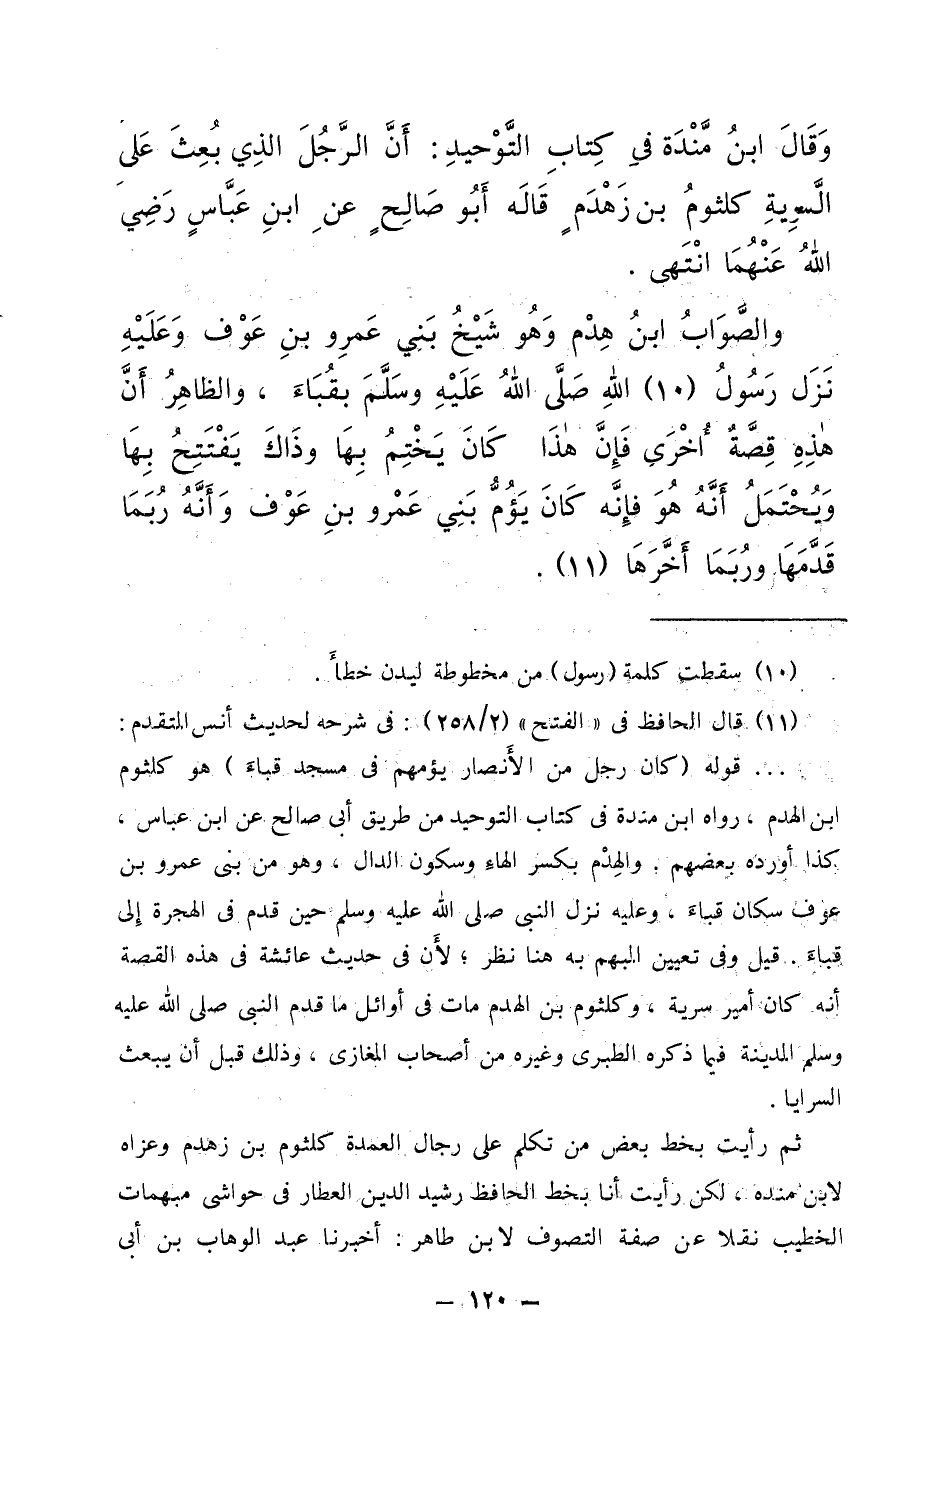 وَقَالَ ابنُ مَّنْدَة فيِ كِتابِ التَّوْحيدِ : أَنَّ الرَّجُلَ الذِي بُعِثَ عَلىَ
السَّوِيةِ كلثومُ بن زَهْدَمٍ قَالَه أَبُو صَالِحٍ عن ابنِ عَبَّاسٍ رَضِيَ
اللهُ عَنْهُمَا انْتَهى .
والصَّوَابُ ابنُ هِدْم وَهُو شَيْخُ بَنِي عَمرِو بنِ عَوْف وَعَلَيْهِ
نَزَل رَسُولُ (١٠) اللهِ صَلَّى اللهُ عَلَيْهِ وسَلَّمَ بقُبَاءَ ، والظاهِرُ أَنَّ
هٰذِهِ قِصَّةٌ أُخْرَي فَإِنَّ هٰذَا كَانَ يَخْتِمُ بِهَا وذَاكَ يَفْتَتِحُ بِهَا
وَيُحْتَمَلُ أَنَّهُ هُوَ فإِنَّه كَانَ يَؤُمُّ بَنِي عَمْرو بنِ عَوْف وَأَنَّهُ رُبَمَا
قَدَّمَهَا ورُبَمَا أَخَّرَهَا (١١) .
(١٠) سقطت كلمة (رسول) من مخطوطة ليدن خطأً .
(١١) قال الحافظ فى « الفتح» (٢٥٨/٢) : فى شرحه لحديث أنس المتقدم :
... قوله (كان رجل من الأَنصار يؤمهم فى مسجد قباءَ ) هو كلثوم
ابن الهدم ، رواه ابن مندة فى كتاب التوحيد من طريق أبى صالح عن ابن عباس ،
كذا أورده بعضهم . والهِدْم بكسر الهاء وسكون الدال ، وهو من بنى عمرو بن
عوف سكان قباءَ ، وعليه نزل النبى صلى الله عليه وسلم حين قدم فى الهجرة إلى
قباءَ . قيل وفى تعيين المبهم به هنا نظر ؛ لأَن فى حديث عائشة فى هذه القصة
أنه كان أمير سرية ، وكلثوم بن الهدم مات فى أوائل ما قدم النبى صلى الله عليه
وسلم المدينة فيما ذكره الطبرى وغيره من أصحاب المغازى ، وذلك قبل أن يبعث
السرايا .
ثم رأيت بخط بعض من تكلم على رجال العمدة كلثوم بن زهدم وعزاه
لابن منده ، لكن رأيت أنا بخط الحافظ رشيد الدين العطار فى حواشى مبهمات
الخطيب نقلا عن صفة التصوف لابن طاهر : أخبرنا عبد الوهاب بن أبى
– ١٢٠ –